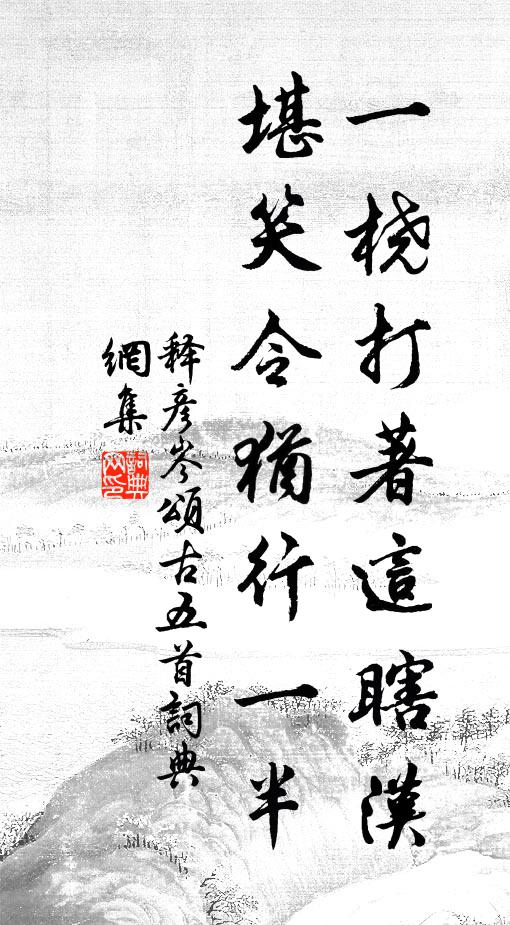 一橈打著這瞎漢
堪笑令猶行一半
释彦岑頌古五首詞典
網集
詞典網印